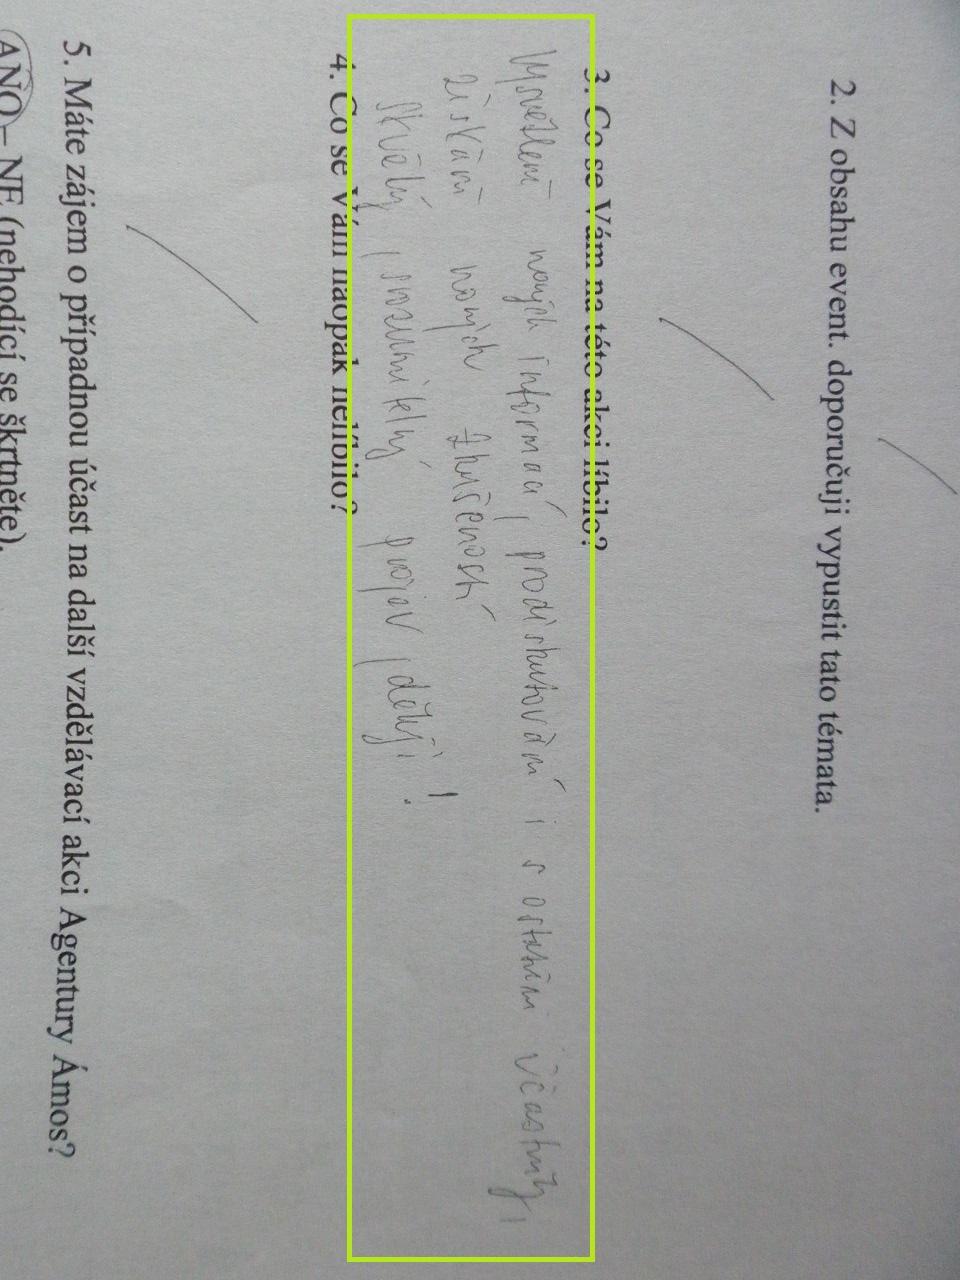 2. Z obsahu event. doporučuji vypustit tato témata.
3. Co se Vám na této akci líbilo?
Vysvětlení nových informací, prodiskutování i s ostatními účastníky,
získání nových zkušeností
skvělý, srozumitelný projev, děkuji!
4. Co se Vám naopak nelíbilo?
5. Máte zájem o případnou účast na další vzdělávací akci Agentury Ámos?
ANO – NE (nehodící se škrtněte).